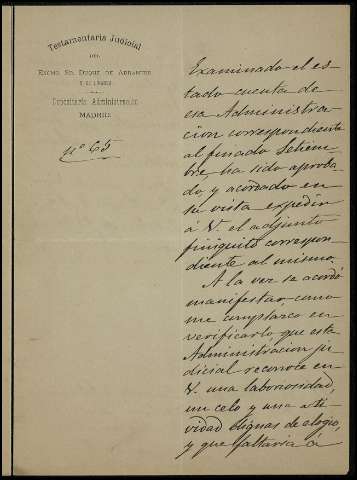 Testamentaria Judicial
DEL
EXCMO. SR. DUQUE DE ABRANTES
Y DE LINARES
Depositaría Administración
MADRID
nº 65
Examinado el es-
tado cuenta de
esa Administra-
cion correspondiente
al finado Setiem-
bre, ha sido aproba-
do, y acordado en
su vista expedir
á V. el adjunto
finiquito correspon-
diente al mismo.
A la vez se acordó
manifestar, como
me complazco en
verificarlo, que esta
Administracion ju-
dicial reconoce en
V. una laboriosidad,
un celo y una acti-
vidad dignas de elogio,
y que faltaria á